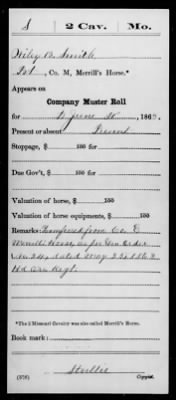 S 2 Cav. Mo.
Wiley B. Smith
Pvt, Co. M, Merrill's Horse.*
Appears on
Company Muster Roll
for June 30, 186
Present or absent Present
Stoppage, $ 100 for
Due Gov't, $ 100 for
Valuation of horse, $ 100
Valuation of horse equipments, $ 100
Remarks: Transferred from Co. E
Merrill's Horse as per Gen Order
No. 24, dated May 23d 1862
Hd Qrs Regt.
*The 2 Missouri Cavalry was also called Merrill's Horse.
Book mark:
(378) Copyist.